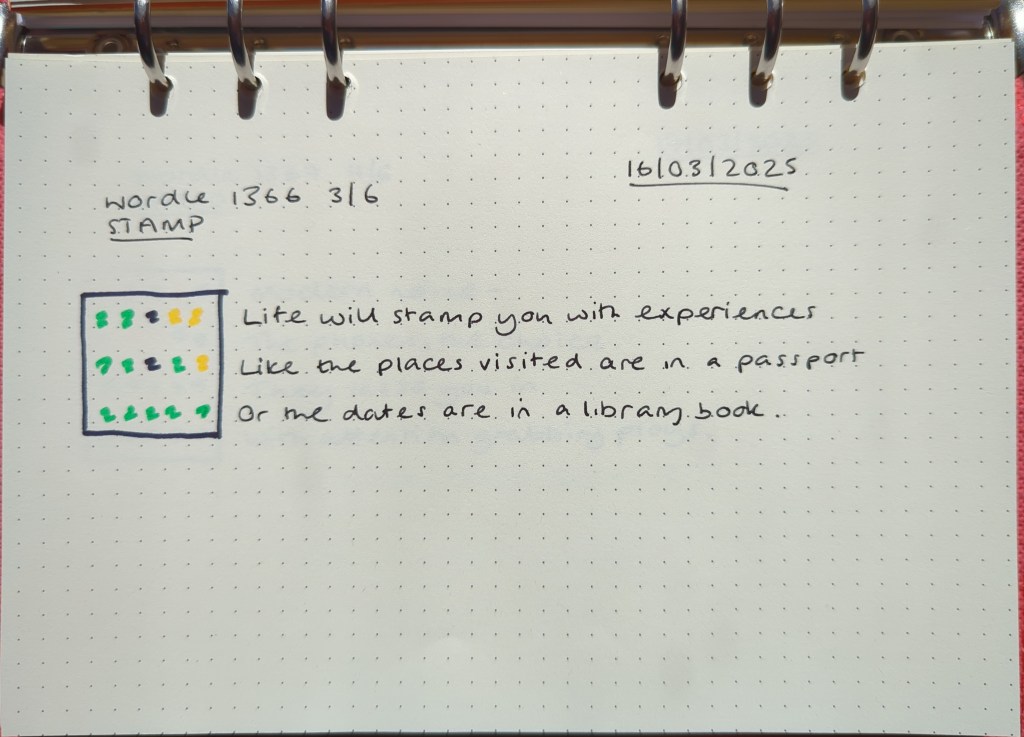 16/03/2025
Wordle 1366 3/6
STAMP
Life will stamp you with experiences
Like the places visited are in a passport
Or the dates are in a library book.